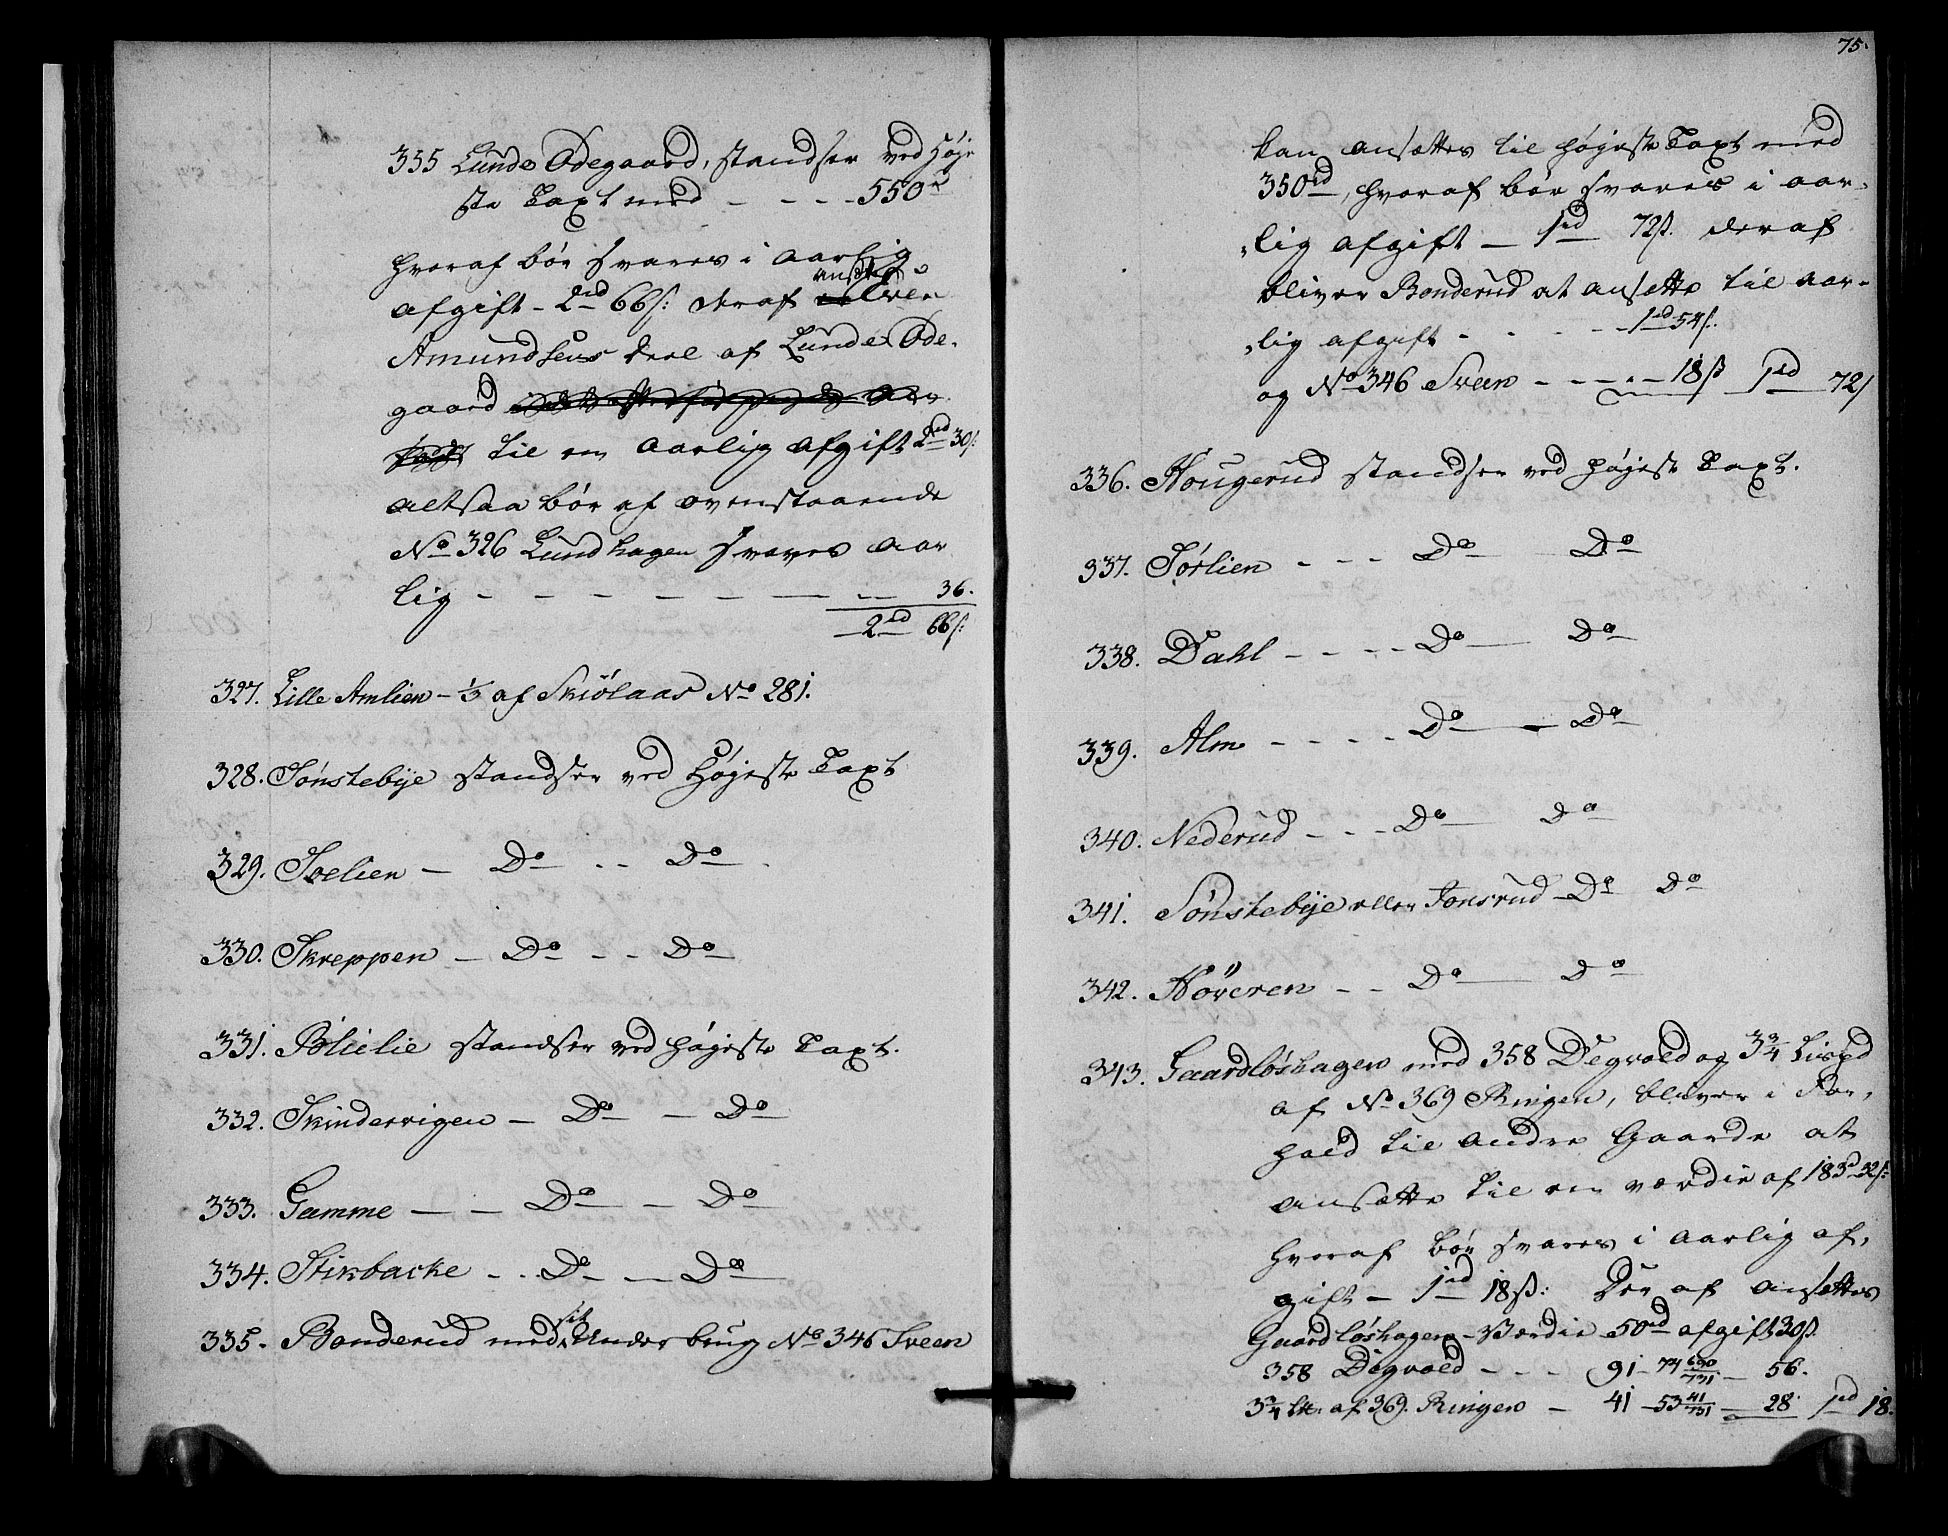 355 Lunde Ødegaard, standser ved Høje
ste Taxt med - - - - 550rd
hvoraf bør svares i aarlig
afgift - 2rd 66ß: deraf ansættes Elver
Amundsens deel af Lunde Øde-
gaard
til en aarlig afgift 2rd 30ß:
altsaa bør af ovenstaaende
No 326 Lundhagen svares aar
lig - - - - - - - 36.
2rd 66ß:
327. Lille Amlien - 1/3 af Skiölaas No 281.
328. Sønstebye standser ved Højeste Taxt
329. Soelien - Do - - Do
330. Skreppen - Do - - Do
331. Blielie standser ved højeste Taxt.
332. Skindervigen - Do - Do
333. Gamme - - Do - Do
334. Stikbacke - - Do - - Do
335. Bonderud med sit Underbrug No 346 Sveen
75.
kan ansættes til højeste Taxt med
350rd, hvoraf bør svares i aar-
lig afgift - 1rd 72ß. deraf
bliver Bonderud at ansætte til aar-
lig afgift - - - - - 1rd 54ß.
og No 346 Sveen - - - - - 18ß 1rd 72ß
336. Hougerud standser ved højeste Taxt.
337. Sørlien - - - Do Do
338. Dahl - - - - Do Do
339. Alm - - - - Do - Do
340. Nederud - - - Do Do
341. Sønstebye eller Jonsrud - Do Do
342. Høveren - - Do Do
343. Gaardløshagen med 358 Degvold og 3 3/4 Lispd
af No 369 Ringen, bliver i For,
hold til andre Gaarde at
ansætte til en værdie af 183rd 32ß:
hvoraf bør svares i aarlig af,
gift - 1rd 18ß: Der af ansættes
Gaardløshagen - Værdie 50rd afgift 30ß.
358 Degvold - - - 91 - 74 690/731 - 56.
3 3/4 lb. af 369. Ringen - 41 - 53 41/731 - 28 1rd 18.